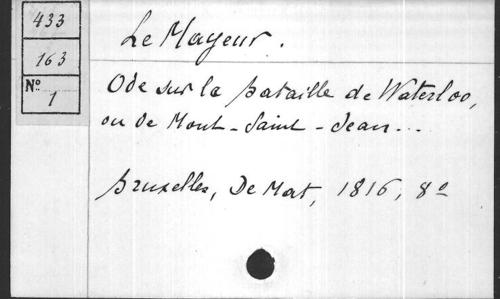 433
163
No
1
Le Mayeur.
Ode sur la bataille de Waterloo,
ou de Mont-Saint-Jean...
Bruxelles, De Mat, 1816, 8º